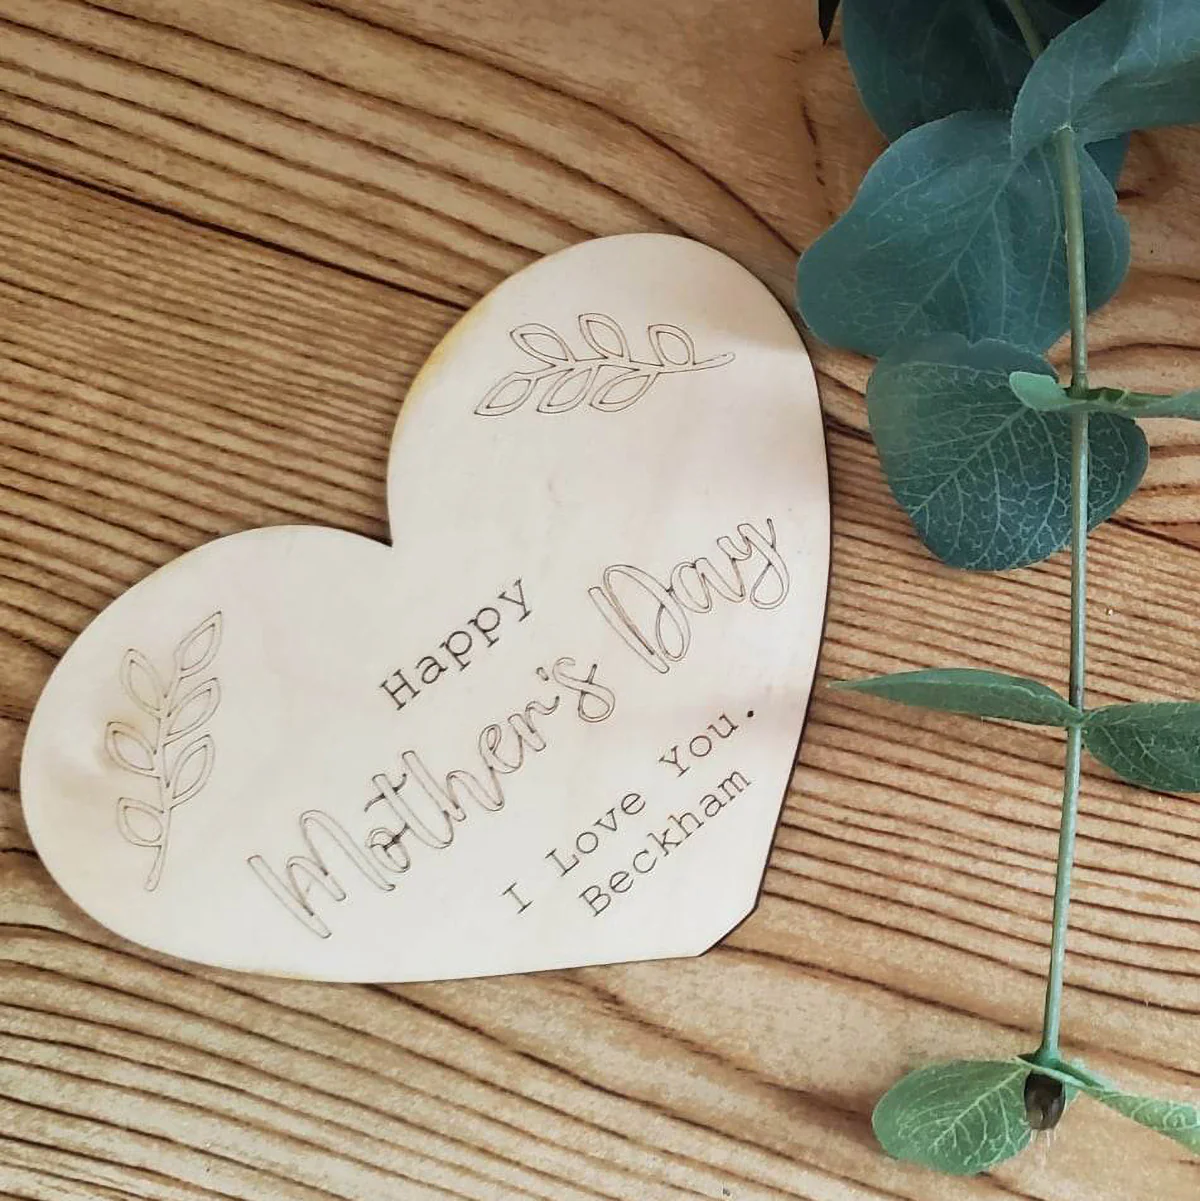 Happy
Mother's Day
I Love You.
Beckham